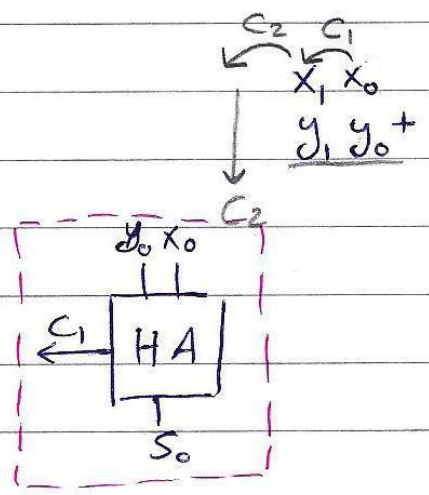 C₂ C₁
x₁ x₀
y₁ y₀ +
C₂
y₀ x₀
C₁
HA
S₀